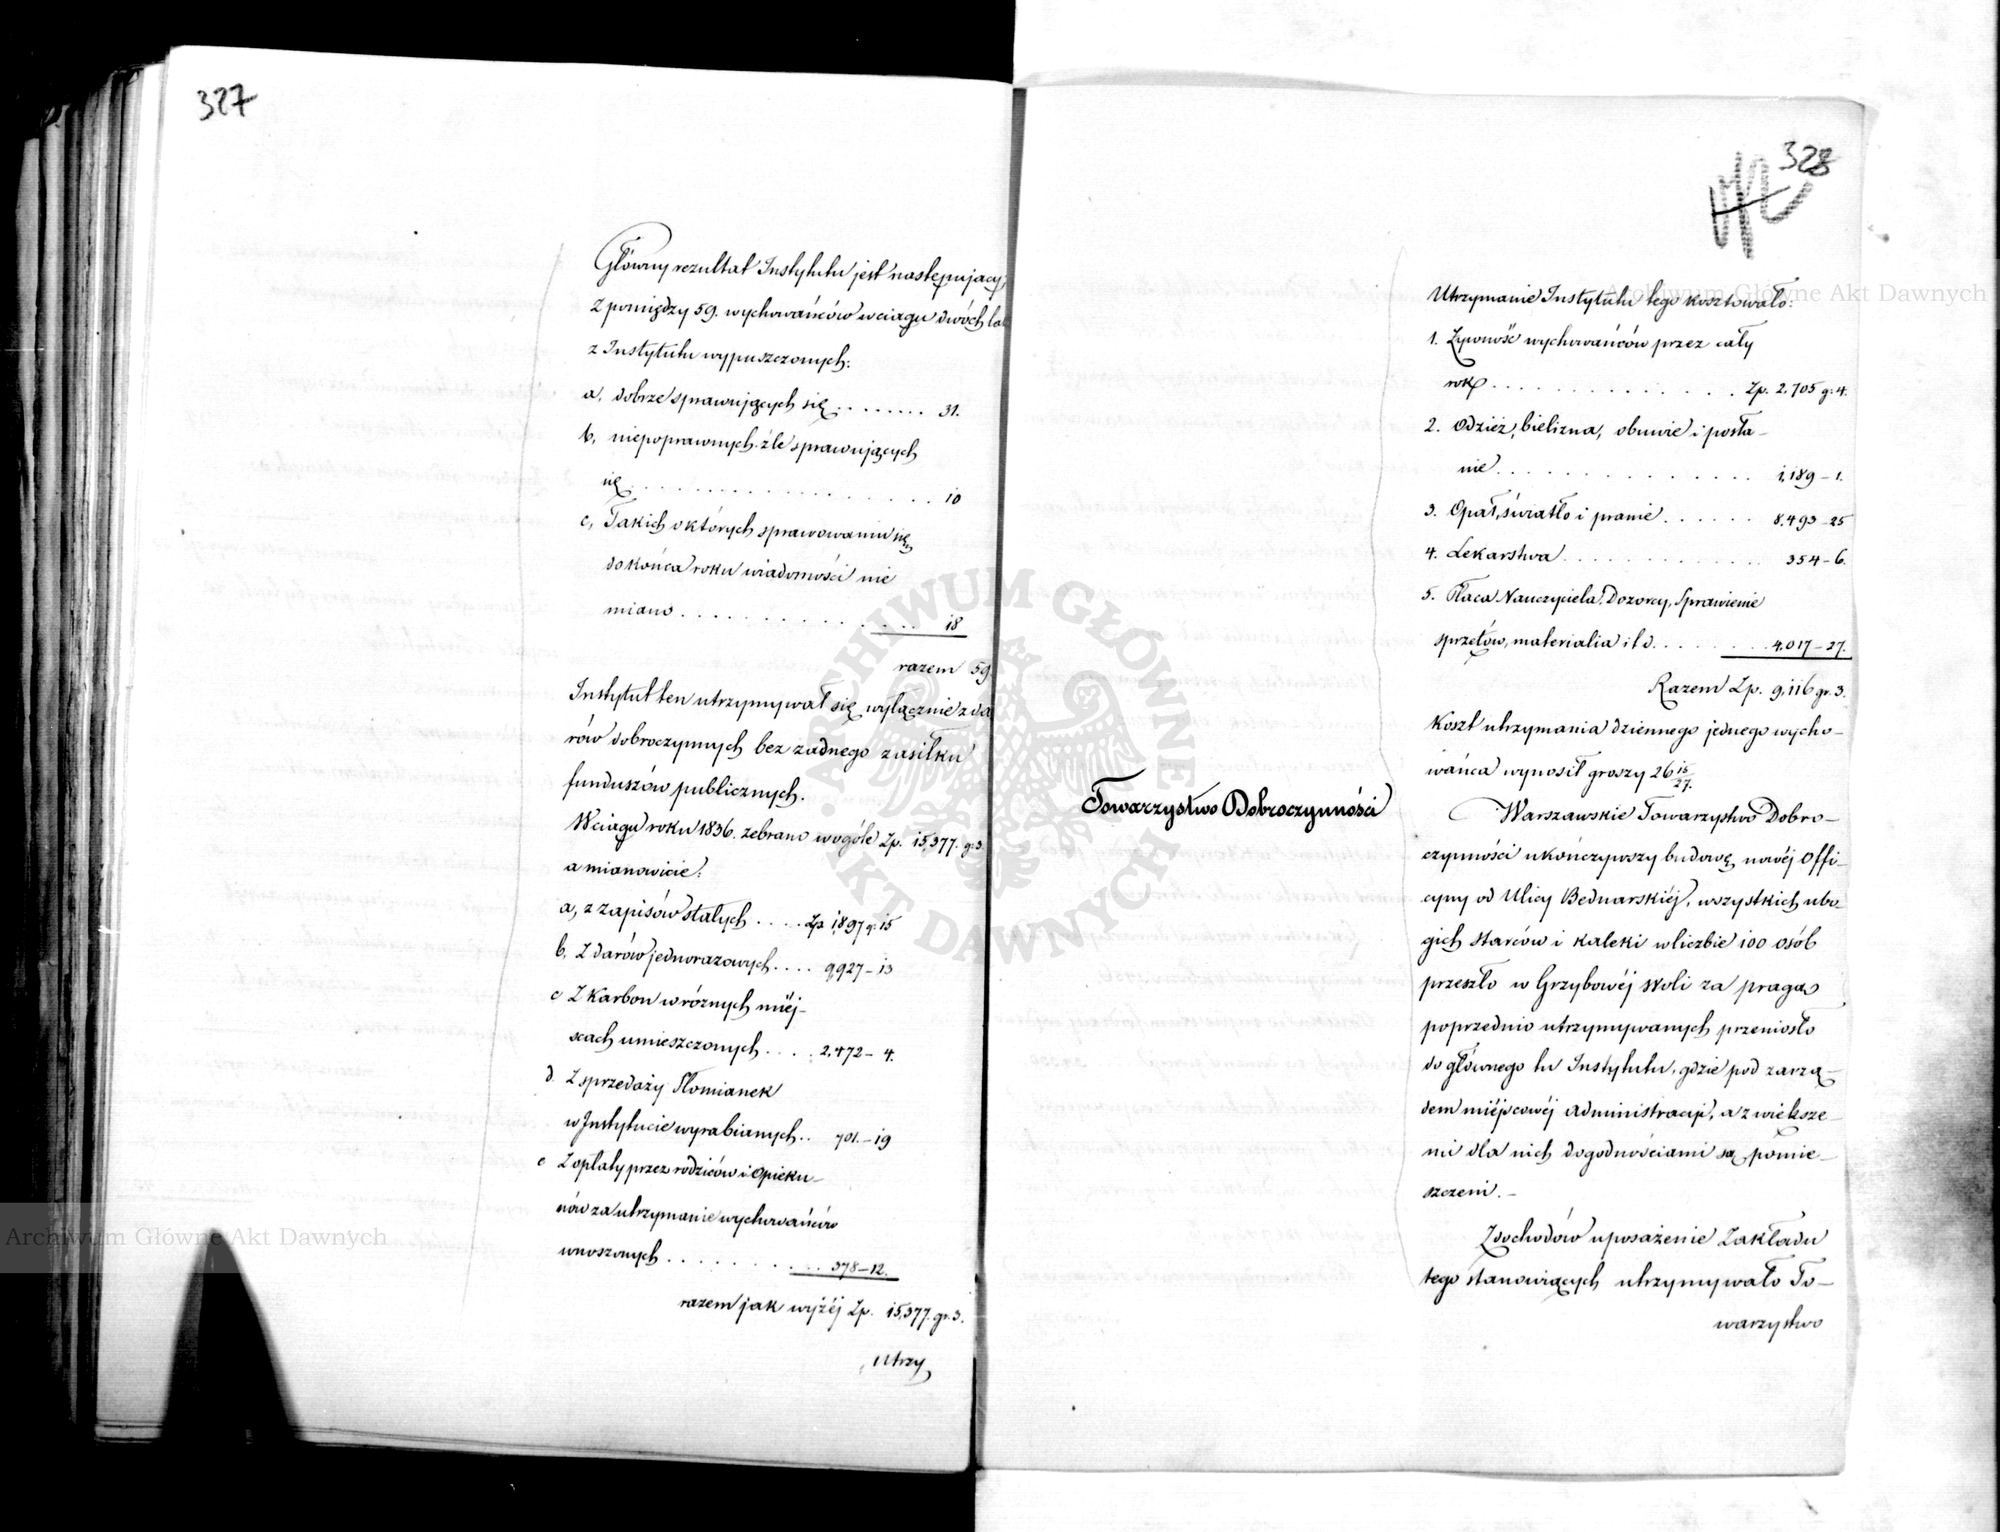 327
Główny rezultat Instytutu jest następujący;
Z pomiędzy 59. wychowańców w ciągu dwóch lat
z Instytutu wypuszczonych:
a, dobrze sprawujących się . . . . . . . . 31.
b, niepoprawnych źle sprawujących
się . . . . . . . . . . . . . . . . . . . 10
c, Takich o których sprawowaniu się
do końca roku wiadomości nie
miano . . . . . . . . . . . . . . . . 18
razem 59
Instytut ten utrzymywał się wyłącznie z da
rów dobroczynnych bez żadnego zasiłku
funduszów publicznych.
W ciągu roku 1836. zebrano w ogóle Zp. 15,377. g. 3.
a mianowicie:
a, z zapisów stałych . . . . Zp 1,897 g: 15
b, Z darów jednorazowych . . . . 9,927 – 13
c Z Karbon w różnych miéj-
scach umieszczonych . . . . 2,472 – 4.
d. Z sprzedaży Słomianek
w Instytucie wyrabianych . . 701. – 19
e Z opłaty przez rodziców i Opieku-
nów za utrzymanie wychowańców
wnoszonych . . . . . . . . . . . 378 – 12.
razem jak wyżéj Zp. 15,377. gr. 3.
Utrzy
328
Utrzymanie Instytutu tego kosztowało:
1. Żywność wychowańców przez cały
rok . . . . . . . . . . . . . . . Zp. 2,705 g: 4.
2. Odzież, bielizna, obuwie i posła-
nie . . . . . . . . . . . . . . 1,189 – 1.
3. Opał, światło i pranie . . . . . . 8,493 – 25
4. Lekarstwa . . . . . . . . . . . . 354 – 6.
5. Płaca Nauczyciela, Dozorcy, Sprawienie
sprzętów, materialia i t d. . . . . . . . 4,017 – 27.
Razem Zp. 9,116 gr. 3.
Koszt utrzymania dziennego jednego wycho-
wańca wynosił groszy 26 15/27.
Towarzystwo Dobroczynności
Warszawskie Towarzystwo Dobro-
czynności ukończywszy budowę nowéj Offi-
cyny od Ulicy Bednarskiéj, wszystkich ubo-
gich starców i kaleki w liczbie 100 osób
przeszło w Grzybowéj Woli za pragą
poprzednio utrzymywanych przeniosło
do głównego tu Instytutu, gdzie pod zarzą-
dem miéjscowéj administracji, a z większe-
mi dla nich dogodnościami są pomie-
szczeni. –
Z dochodów uposażenie Zakładu
tego stanowiących utrzymywało To-
warzystwo
Archiwum Główne Akt Dawnych
Archiwum Główne Akt Dawnych
ARCHIWUM GŁÓWNE AKT DAWNYCH